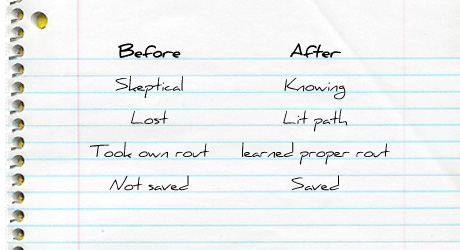 Before After
Skeptical Knowing
Lost Lit path
Took own rout learned proper rout
Not saved Saved